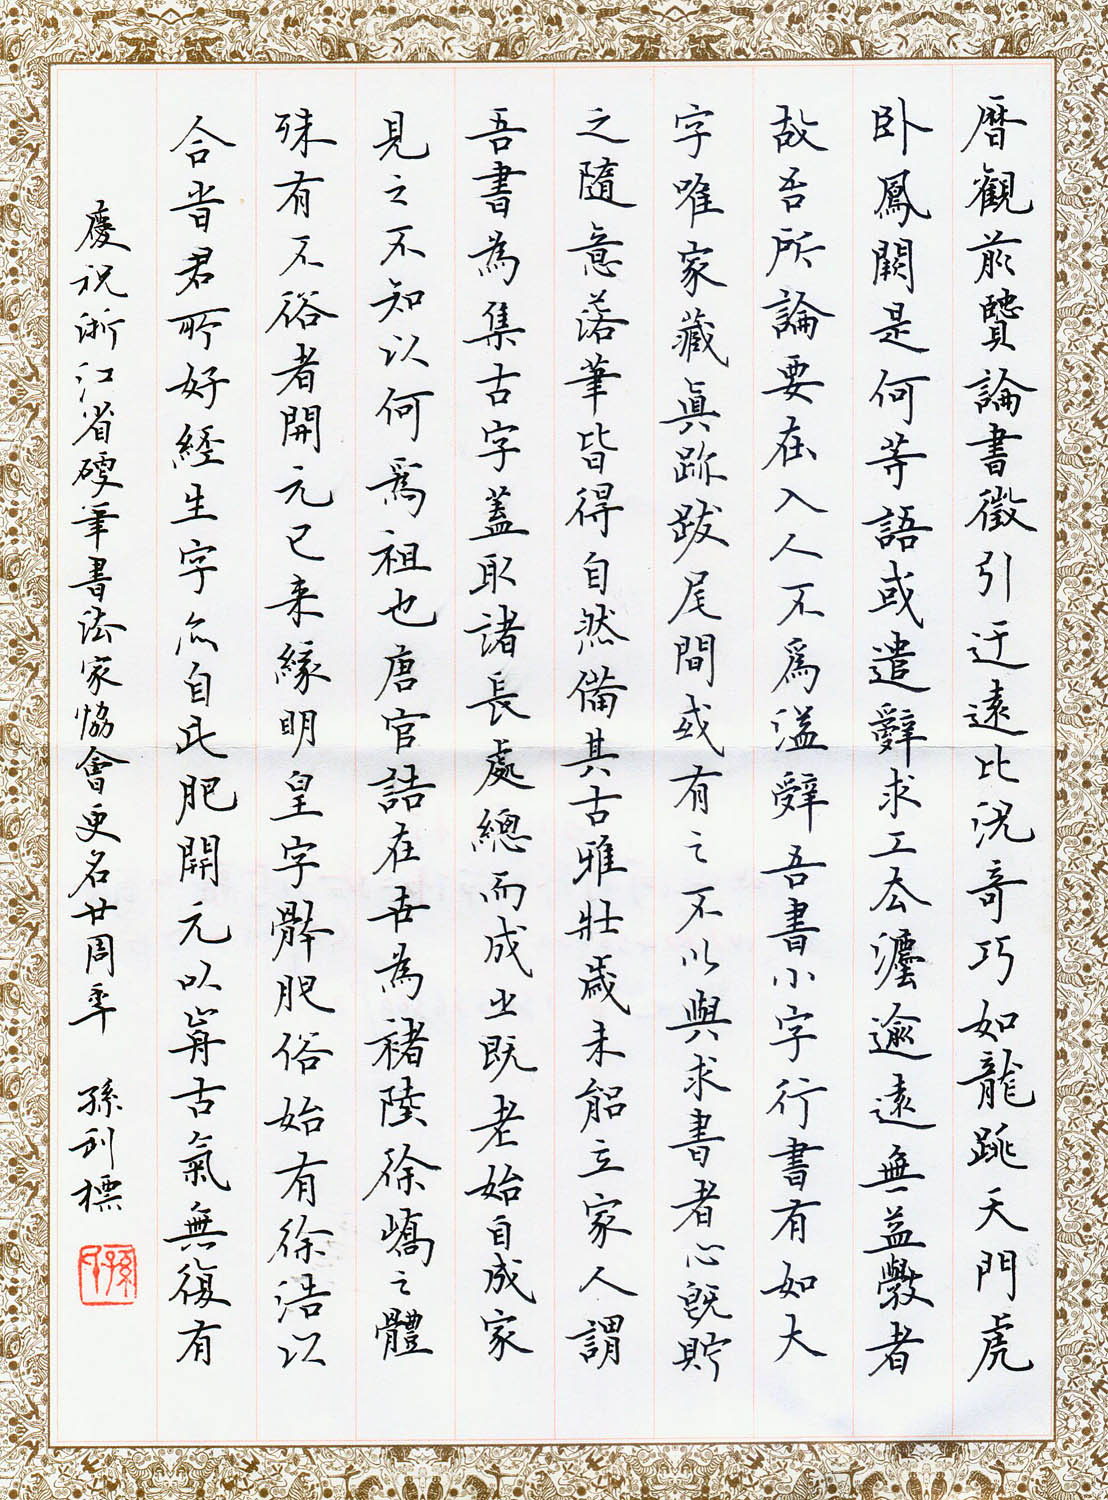 曆觀前賢論書徵引迂遠比況奇巧如龍跳天門虎
卧鳳闕是何等語或遣辭求工去灋逾遠無益學者
故吾所論要在入人不爲溢辭吾書小字行書有如大
字唯家藏真跡跋尾間或有之不以與求書者心既貯
之隨意落筆皆得自然備其古雅壯歲未能立家人謂
吾書為集古字蓋取諸長處總而成之既老始自成家
見之不知以何爲祖也唐官誥在世為褚陸徐嶠之體
殊有不俗者開元已来緣明皇字體肥俗始有徐浩以
合時君所好經生字亦自此肥開元以前古氣無復有
慶祝浙江省硬筆書法家協會更名廿周年 孫利標
孫